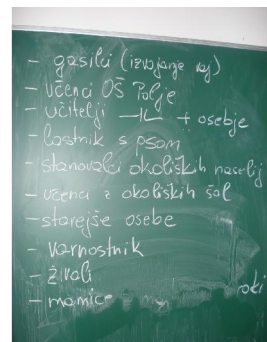 - gasilci (izvajanje vaj)
- učenci OŠ Polje
- učitelji -||- + osebje
- lastnik s psom
- stanovalci okoliških naselij
- učenci z okoliških šol
- starejše osebe
- varnostnik
- živali
- mamice